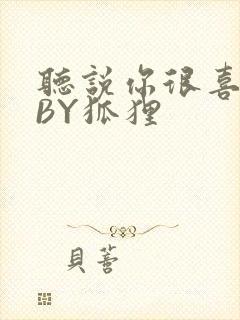 聽說你很喜
BY狐狸
貝蕾